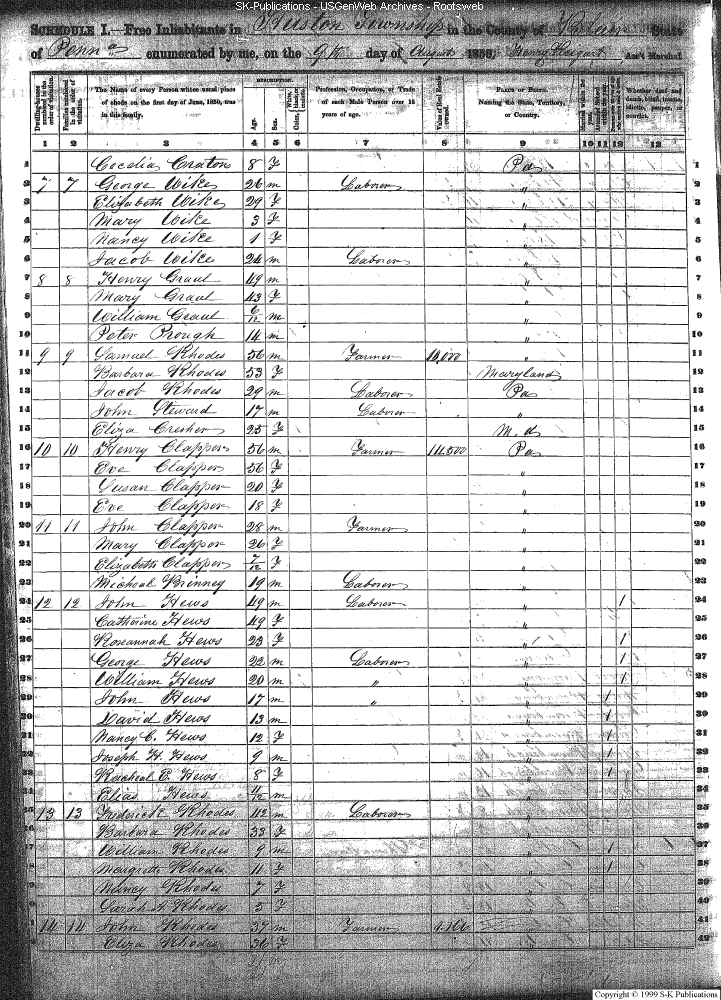 SK-Publications - USGenWeb Archives - Rootsweb
SCHEDULE I.—Free Inhabitants in Huston Township in the County of State
of Penna enumerated by me, on the 9th day of August 1850. Ass't Marshal
Dwelling-houses numbered in the order of visitation. Families numbered in the order of visitation. The Name of every Person whose usual place of abode on the first day of June, 1850, was in this family. DESCRIPTION. Age. Sex. Color, White, black, or mulatto. Profession, Occupation, or Trade of each Male Person over 15 years of age. Value of Real Estate owned. PLACE OF BIRTH. Naming the State, Territory, or Country. Married within the year. Whether deaf and dumb, blind, insane, idiotic, pauper, or convict.
1 2 3 4 5 6 7 8 9 10 11 12 13
1 Cecelia Craton 8 F Pa 1
2 7 7 George Wike 26 m Laborer " 2
3 Elizabeth Wike 29 F " 3
4 Mary Wike 3 F " 4
5 Nancy Wike 1 F " 5
6 Jacob Wike 24 m Laborer " 6
7 8 8 Henry Graul 49 m " 7
8 Mary Graul 43 F " 8
9 William Graul 6/12 m " 9
10 Peter Prough 14 m " 10
11 9 9 Samuel Rhodes 56 m Farmer 10,000 " 11
12 Barbara Rhodes 53 F Maryland 12
13 Jacob Rhodes 29 m Laborer Pa 13
14 John Steward 17 m Laborer " 14
15 Eliza Cresher 25 F M.d 15
16 10 10 Henry Clapper 56 m Farmer Pa 16
17 Eve Clapper 56 F " 17
18 Susan Clapper 20 F " 18
19 Eve Clapper 18 F " 19
20 11 11 John Clapper 28 m Farmer " 20
21 Mary Clapper 26 F " 21
22 Elizabeth Clapper 7/12 F " 22
23 Micheal Brinney 19 m Laborer " 23
24 12 12 John Hews 49 m Laborer " 1 24
25 Catherine Hews 49 F " 25
26 Roseannah Hews 23 F " 1 26
27 George Hews 22 m Laborer " 1 27
28 William Hews 20 m " " 1 28
29 John Hews 17 m " " 1 29
30 David Hews 13 m " 1 30
31 Nancy C. Hews 12 F " 1 31
32 Joseph H. Hews 9 m " 1 32
33 Racheal E. Hews 8 F " 1 33
34 Elias Hews 11/12 m " 34
35 13 13 Fredrick Rhodes 42 m Laborer " 35
36 Barbara Rhodes 33 F " 36
37 William Rhodes 9 m " 1 37
38 Margrett Rhodes 11 F " 1 38
39 Nancy Rhodes 7 F " 39
40 Sarah A Rhodes 5 F " 40
41 14 14 John Rhodes 37 m Farmer " 41
42 Eliza Rhodes 36 F " 42
Copyright © 1999 S-K Publications